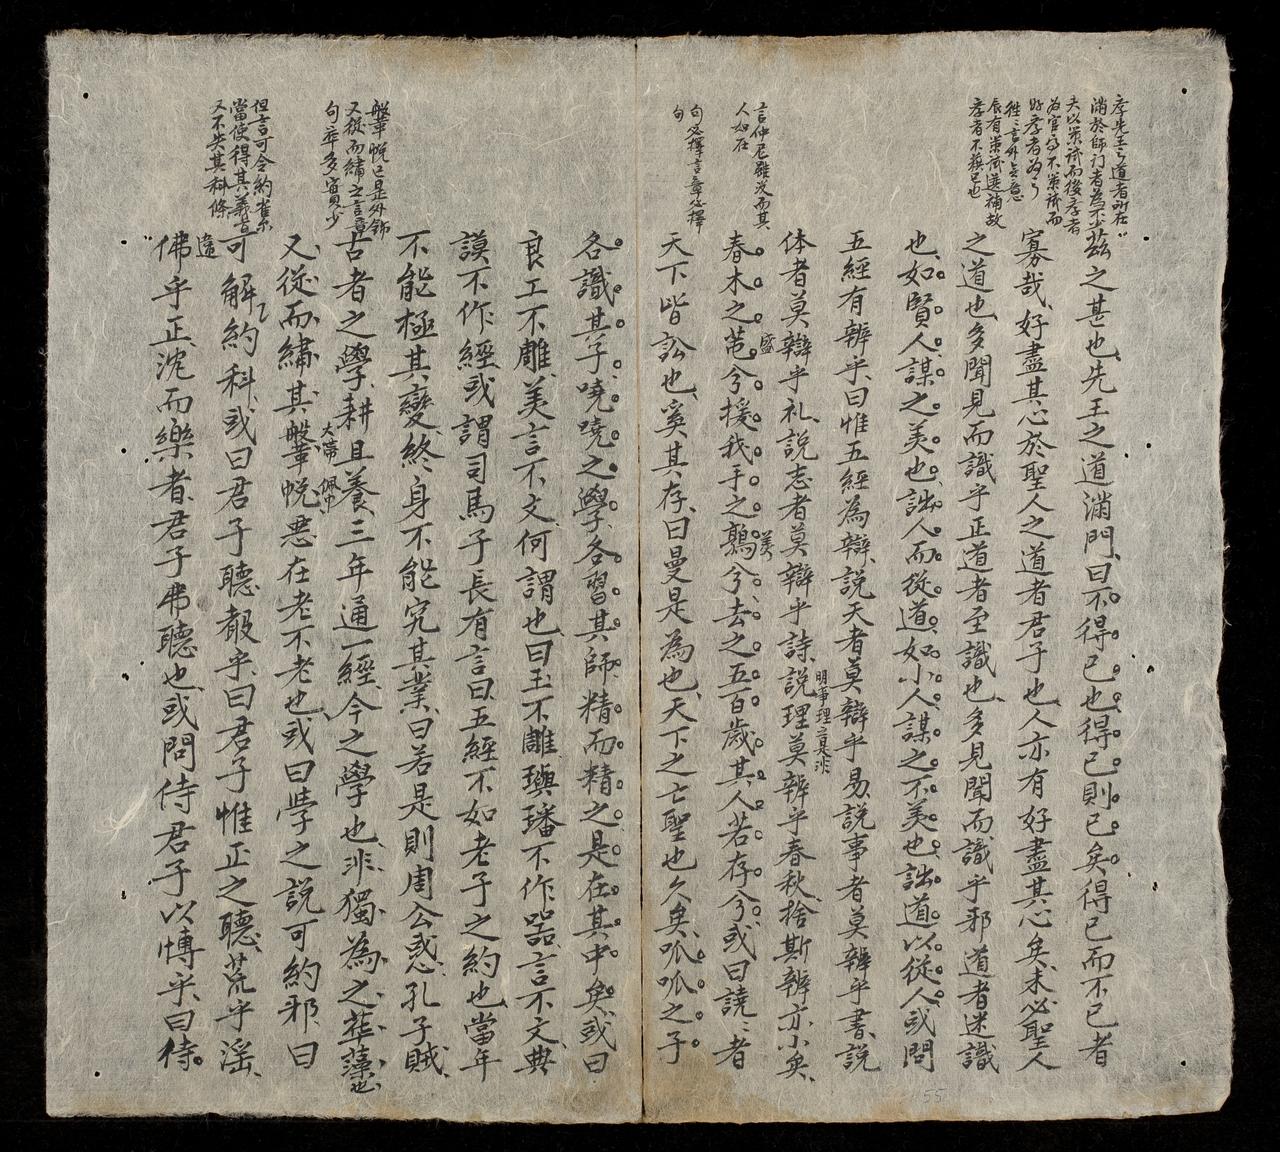 孝先王之道者所在
滿於師门者為不少
夫以策試而後孝者
為官 不策試而
好孝者為
言外 意
辰有策試選補故
孝者不蘓已也
茲之甚也先王之道滿門曰不得已也得已則已矣得已而不已者
寡哉好盡其心於聖人之道者君子也人亦有好盡其心矣未必聖人
之道也多聞見而識乎正道者至識也多見聞而識乎邪道者迷識
也如賢人謀之美也詘人而從道如小人謀之不美也詘道以從人或問
五經有辨乎曰惟五經為辯說天者莫辯乎易說事者莫辨乎書說
体者莫辯乎礼說志者莫辯乎詩說理莫辨乎春秋捨斯辨亦小矣
明事理言是非
言仲尼雖没而其
人如在
春木之芚兮援我手之鶉兮去之五百歲其人若存兮或曰譊〻者
盛
美
句必擇言章必擇
句
天下皆訟也奚其存曰曼是為也天下之亡聖也久矣呱呱之子
各識其子嘵嘵之學各習其師精而精之是在其中矣或曰
良工不雕美言不文何謂也曰玉不雕璵璠不作噐言不文典
謨不作經或謂司馬子長有言曰五經不如老子之約也當年
不能極其變終身不能究其業曰若是則周公惑孔子賊
般鞶帨已是外飾
又從而繡之言章
句卒多寘見少
古者之學耕且養三年通一經今之學也非獨為之華藻也
又從而繡其鞶帨惡在老不老也或曰學之說可約邪曰
大帶
佩巾
但言可令約省尔
當使得其義旨
又不失其科條
可解約科或曰君子聽聲乎曰君子惟正之聽荒乎淫
遠
佛乎正沈而樂者君子弗聽也或問侍君子以愽乎曰侍
55